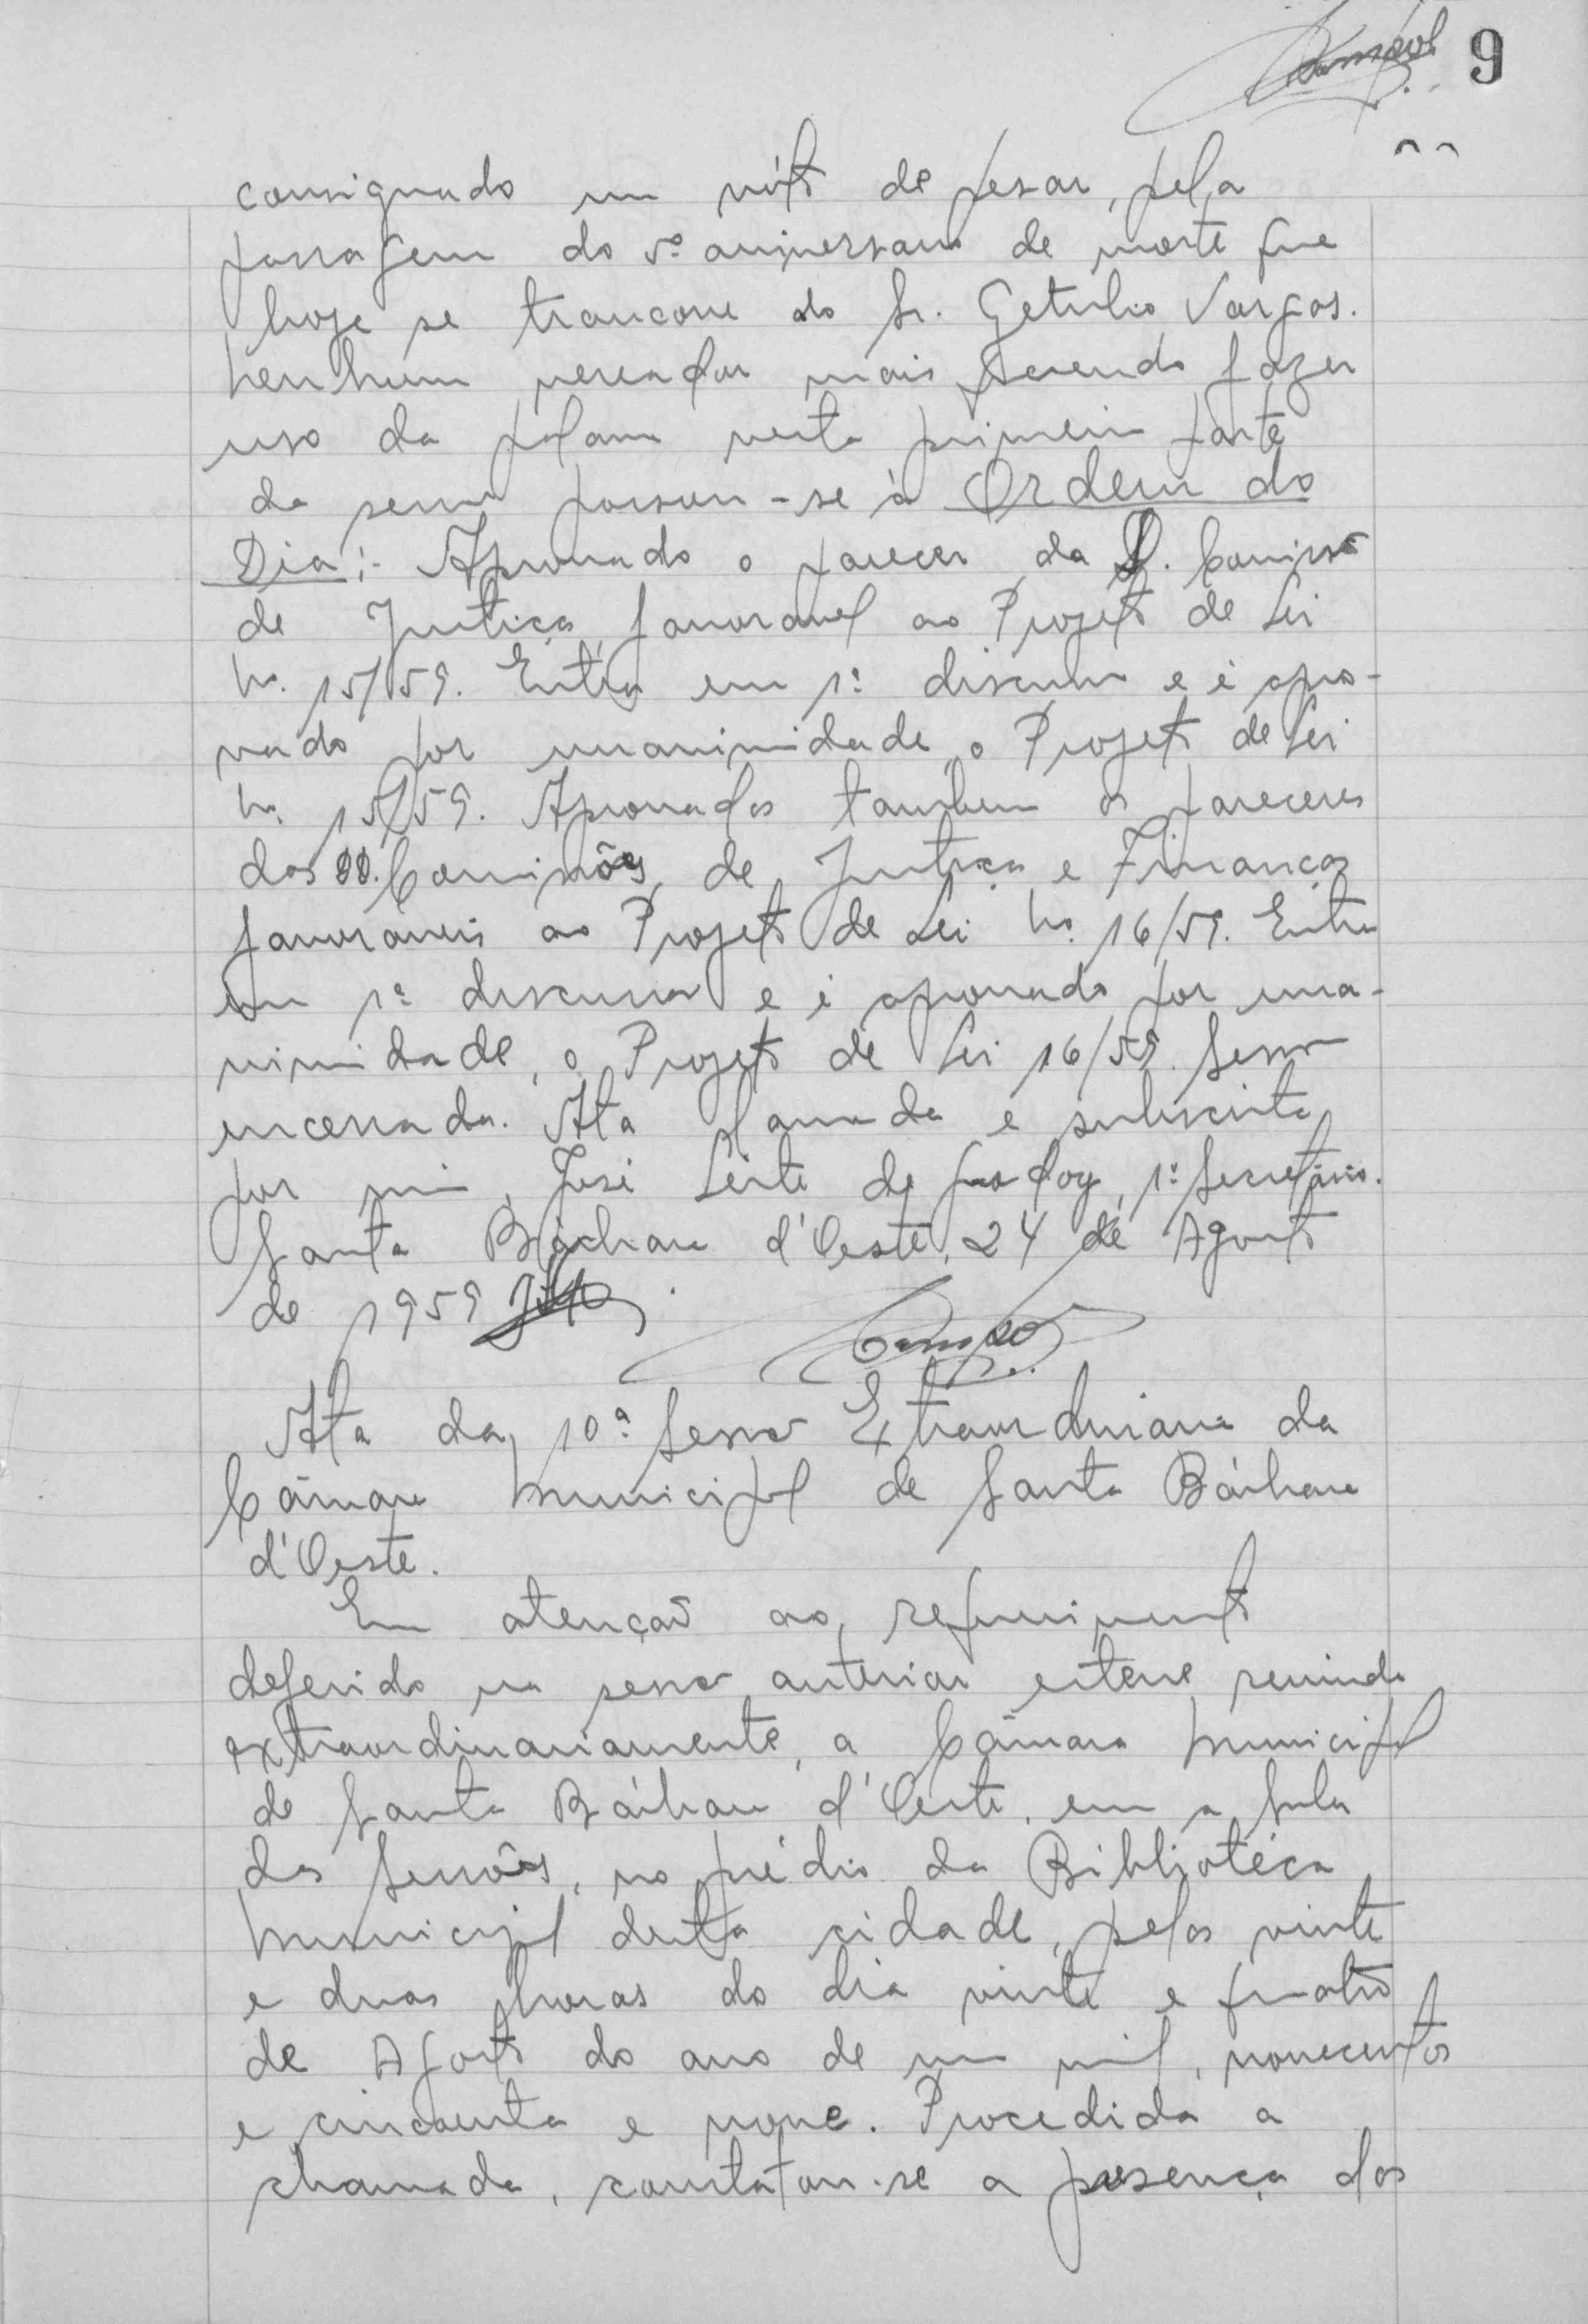 9
consignado um vóto de pesar, pela
passagem do 5º aniversario de morte que
hoje se transcorre do Sr. Getulio Vargas.
Nenhum vereador mais querendo fazer
uso da palavra nesta primeira parte
da sessão passou-se à Ordem do
Dia:- Aprovado o parecer da D. Comissão
de Justiça favoravel ao Projeto de Lei
No. 15/59. Entra em 1ª discussão e é apro-
vado por unanimidade o Projeto de Lei
No. 15/59. Aprovados tambem os pareceres
das DD. Comissões de Justiça e Finanças
favoraveis ao Projeto de Lei No. 16/59. Entra
em 1ª discussão e é aprovado por una-
nimidade, o Projeto de Lei 16/59. Sessão
encerrada. Ata lavrada e subscrita
por mim, José Leite de Godoy, 1º Secretário.
Santa Bárbara d'Oeste, 24 de Agosto
de 1959
Ata da 10ª Sessão Extraordinaria da
Câmara Municipal de Santa Bárbara
d'Oeste.
Em atenção ao requerimento
deferido na sessão anterior esteve reunida
extraordinariamente, a Câmara Municipal
de Santa Bárbara d'Oeste, em a Sala
das Sessões, no prédio da Bibliotéca
Municipal desta cidade, pelas vinte
e duas horas do dia vinte e quatro
de Agosto do ano de um mil, novecentos
e cincoenta e nove. Procedida a
chamada, constatou-se a presença dos